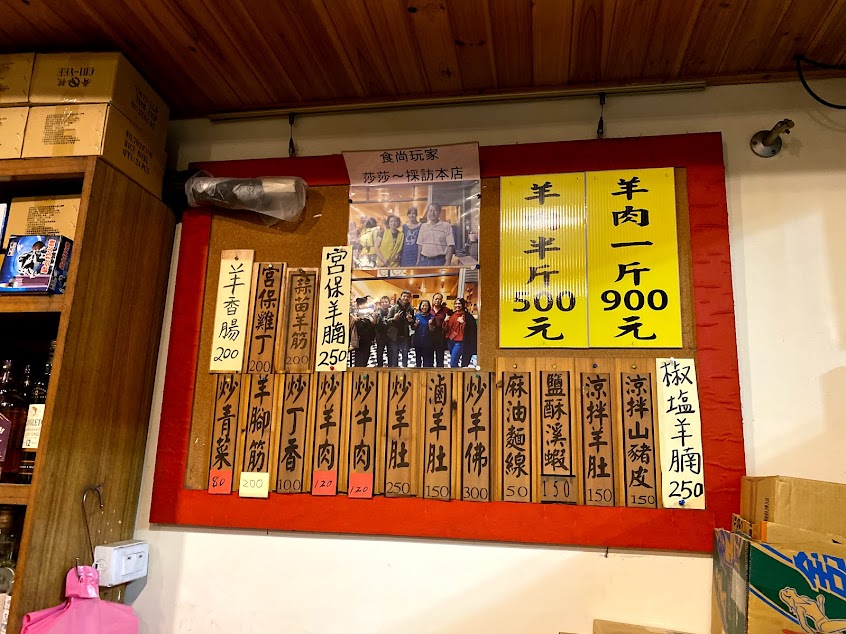 食尚玩家
莎莎~採訪本店
羊肉半斤500元
羊肉一斤900元
羊香腸200
宮保雞丁200
蒜苗羊筋200
宮保羊腩250
炒青菜80
羊腳筋200
炒丁香100
炒羊肉120
炒牛肉120
炒羊肚250
滷羊肚150
炒羊佛300
麻油麵線50
鹽酥溪蝦150
涼拌羊肚150
涼拌山豬皮150
椒塩羊腩250
CHI-YEE